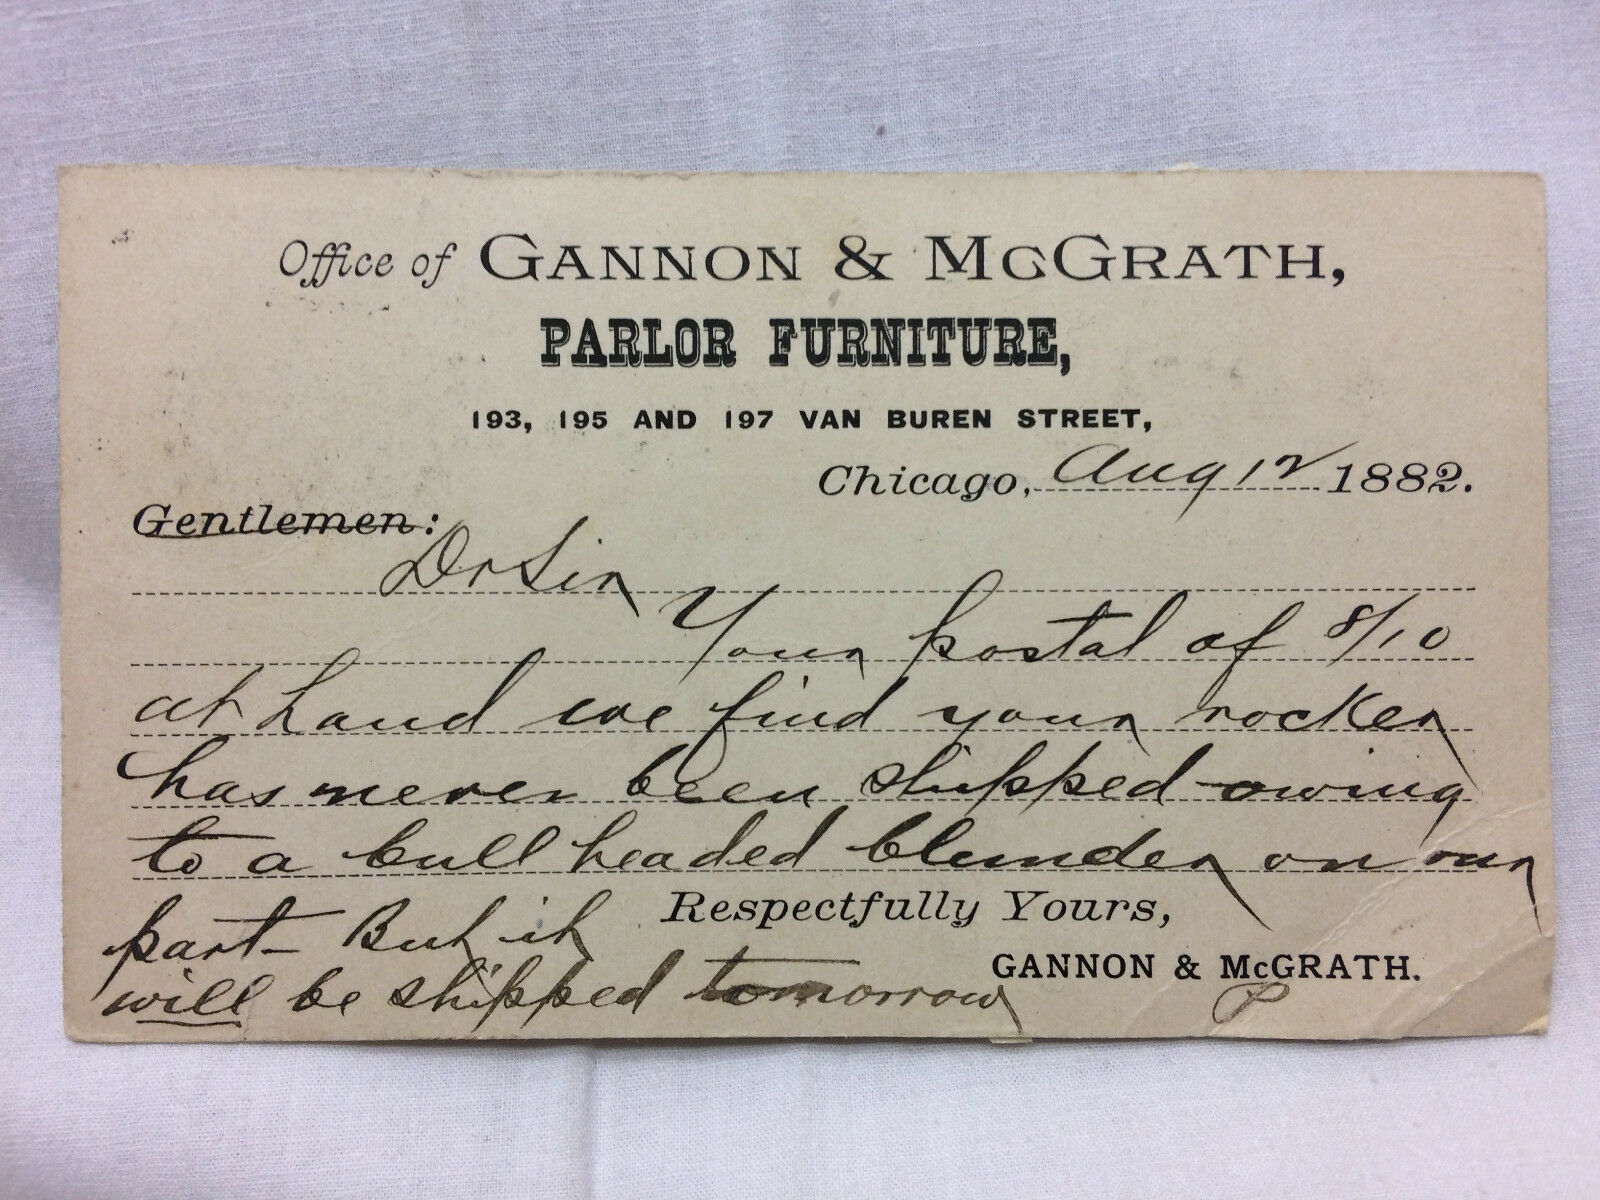 Office of GANNON & McGRATH,
PARLOR FURNITURE,
193, 195 AND 197 VAN BUREN STREET,
Chicago, Aug 12 1882.
Gentlemen:
Dr Sir
Your postal of 8/10
at hand we find your rocker
has never been shipped owing
to a bull headed blunder on our
part - But it
Respectfully Yours,
will be shipped tomorrow
GANNON & McGRATH.
P